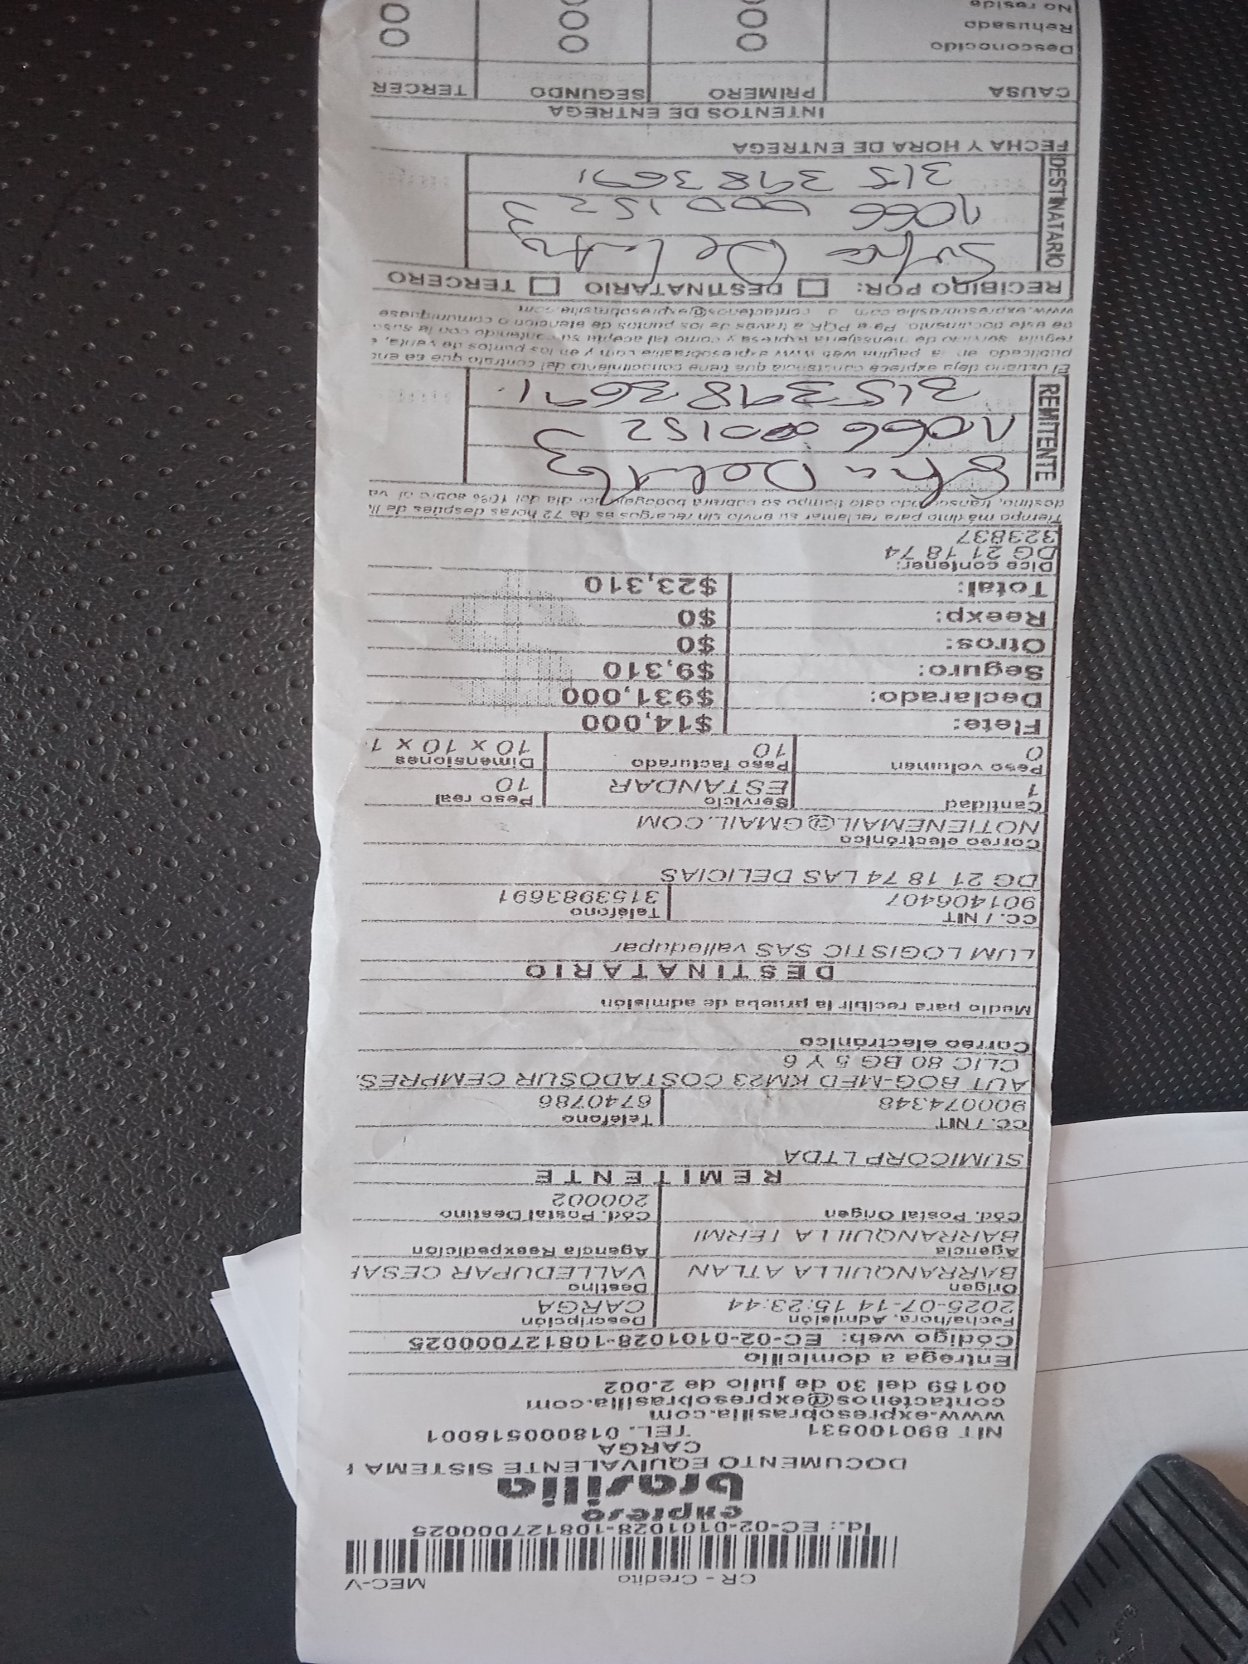 CR - Credito MEC-V
Id.: EC-02-0101028-108127000025
expreso
brasilia
DOCUMENTO EQUIVALENTE SISTEMA
CARGA
NIT 890100531 TEL. 018000518001
www.expresobrasilia.com
contactenos@expresobrasilia.com
00159 del 30 de julio de 2.002
Entrega a domicilio
Código web: EC-02-0101028-108127000025
Fecha/hora, Admisión Descripción
2025-07-14 15:23:44 CARGA
Origen Destino
BARRANQUILLA ATLAN VALLEDUPAR CESAR
Agencia Agencia Reexpedición
BARRANQUILLA TERMI
Cód. Postal Origen Cód. Postal Destino
200002
REMITENTE
SUMICORP LTDA
CC. / NIT Teléfono
900074348 6740786
AUT BOG-MED KM23 COSTADOSUR CEMPRES.
CLIC 80 BG 5 Y 6
Correo electrónico
Medio para recibir la prueba de admisión
DESTINATARIO
LUM LOGISTIC SAS valledupar
CC. / NIT Teléfono
901406407 3153983691
DG 21 18 74 LAS DELICIAS
Correo electrónico
NOTIENEMAIL@GMAIL.COM
Cantidad Servicio Peso real
1 ESTANDAR 10
Peso volumen Peso facturado Dimensiones
0 10 10 x 10 x 1
Flete: $14,000
Declarado: $931,000
Seguro: $9,310
Otros: $0
Reexp: $0
Total: $23,310
Dice contener:
DG 21 18 74
323837
Tiempo máximo para reclamar su envío sin recargos es de 72 horas después de
destino, transcurrido este tiempo se cobrará bodegaje por día del 10% sobre el va
REMITENTE
1066 000152
315 398 3691
El usuario deja expresa constancia que tiene conocimiento del contrato que se en
publicado en la página web www.expresobrasilia.com y en los puntos de venta,
regula servicio de mensajería expresa y como tal acepta su contenido con la sus
de este documento. Para PQR a través de los puntos de atención o comuníquese
www.expresobrasilia.com a contactenos@expresobrasilia.com
RECIBIDO POR: DESTINATARIO TERCERO
DESTINATARIO
1066 000152
315 398 3691
FECHA Y HORA DE ENTREGA
INTENTOS DE ENTREGA
CAUSA PRIMERO SEGUNDO TERCER
Desconocido
Rehusado
No reside